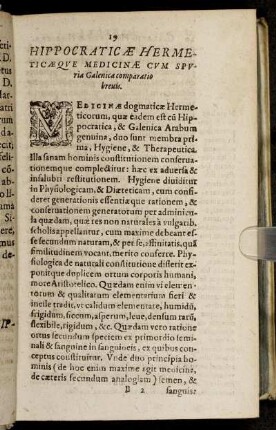 19
HIPPOCRATICÆ HERME-
TICÆQVE MEDICINÆ CVM SPV-
ria Galenica comparatio
breuis.
MEDICINÆ dogmaticæ Herme-
ticorum, quæ eadem est cū Hip-
pocratica, & Galenica Arabum
genuina, duo sunt membra pri-
ma, Hygiene, & Therapeutica.
Illa sanam hominis constitutionem conserua-
tionemque complectitur: hæc ex aduersa &
insalubri restitutionem. Hygiene diuiditur
in Physiologicam, & Diæteticam, cum consi-
deret generationis essentiæque rationem, &
conseruationem generatorum per adminicu-
la quædam, quæ res non naturales à vulgatib.
scholis appellantur, cum maxime debeant es-
se secundum naturam, & per se, affinitatis, quã
similitudinem vocant, merito conserere. Phy-
siologica de naturali constitutione disserit ex-
ponitque duplicem ortum corporis humani,
more Aristotelico. Quædam enim vi elemen-
torum & qualitatum elementarium fieri &
inesse tradit, vt calidum elementare, humidū,
frigidum, siccum, asperum, leue, densum rarū,
flexibile, rigidum, &c. Quædam vero ratione
ortus secundum speciem ex primordio semi-
nali & sanguine in sanguineis, ex quibus con-
ceptus constituitur. Vnde duo principia ho-
minis (de hoc enim maxime agit medicina,
de cæteris secundum analogiam) semen, &
B 2 sanguis